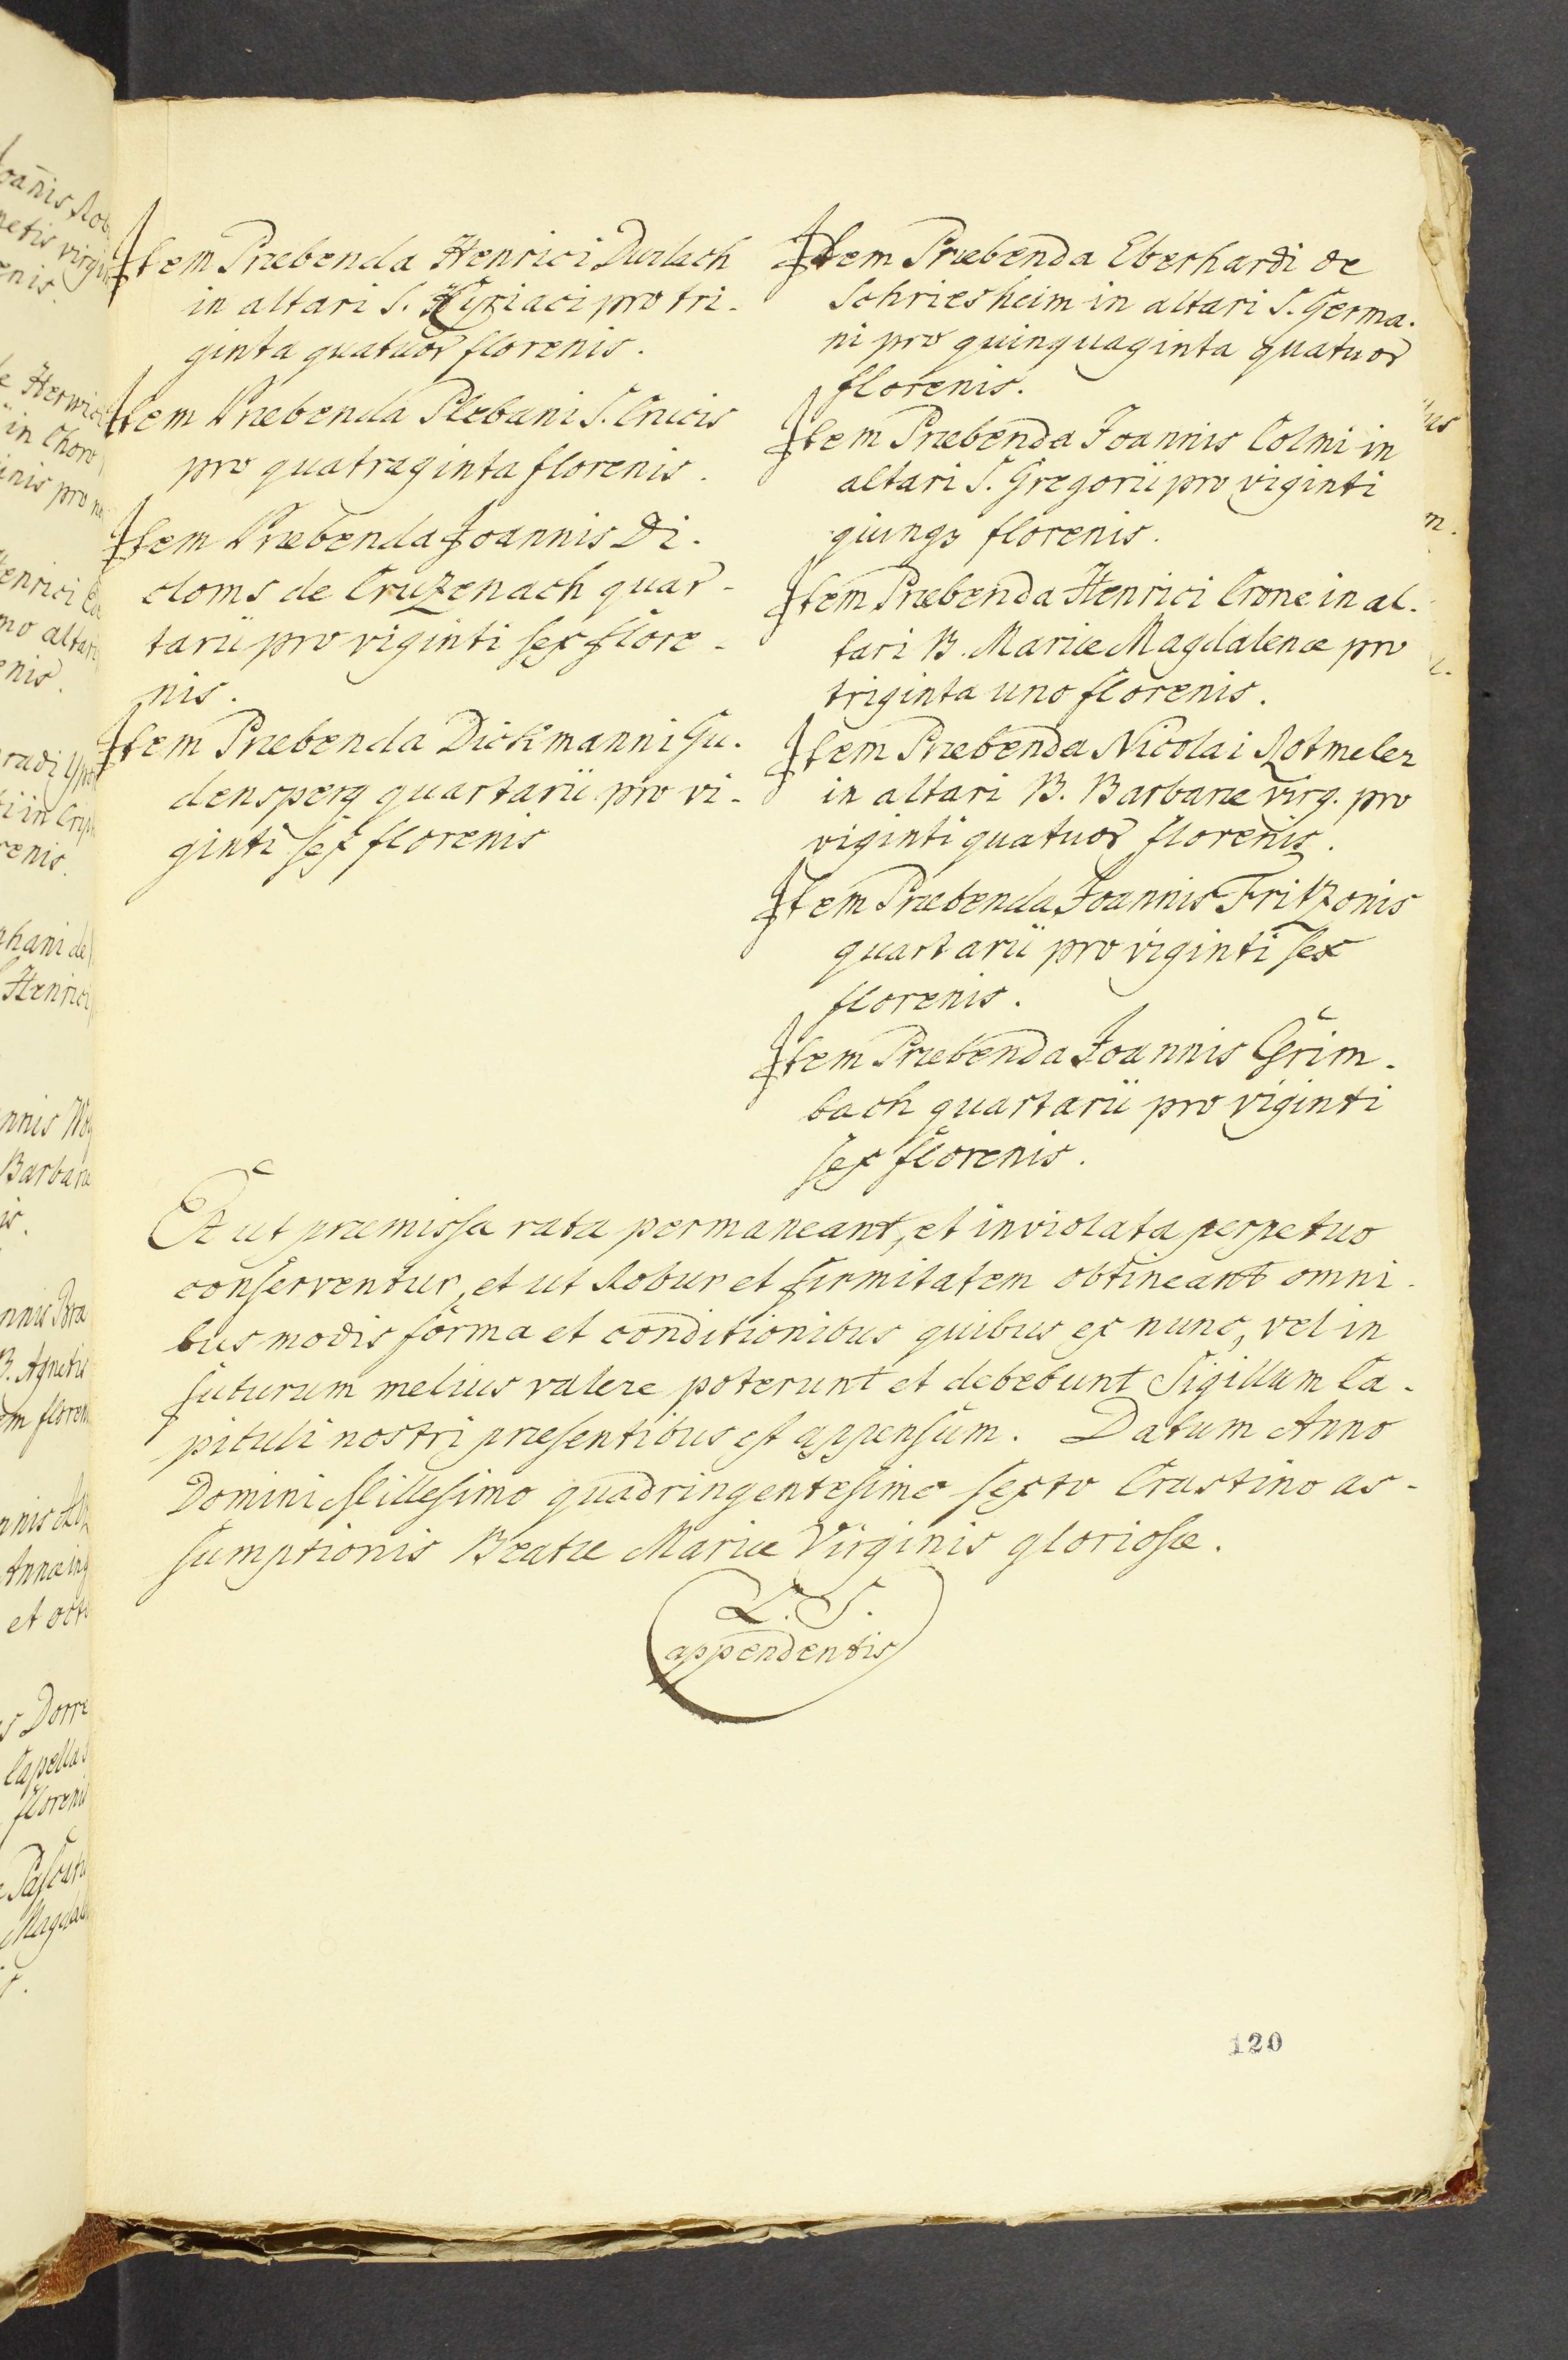 Item Præbenda Henrici Durlach
in altari S. Kyriaci pro tri-
ginta quatuor florenis.
Item Præbenda Plebani S. Crucis
pro quatraginta florenis.
Item Præbenda Joannis Di-
cloms de Cruzenach quar-
tarii pro viginti sex flore-
nis.
Item Præbenda Dickmanni Gu-
densperg quartarii pro vi-
ginti sex florenis
Item Præbenda Eberhardi de
Schriesheim in altari S. Germa-
ni pro quinquaginta quatuor
florenis.
Item Præbenda Joannis Colmi in
altari S. Gregorii pro viginti
quinqz florenis.
Item Præbenda Henrici Crone in al-
tari B. Mariæ Magdalenæ pro
triginta uno florenis.
Item Præbenda Nicolai Rotmeler
in altari B. Barbaræ virg. pro
viginti quatuor florenis.
Item Præbenda Joannis Fritzonis
quartarii pro viginti sex
florenis.
Item Præbenda Joannis Grim-
bach quartarii pro viginti
sex florenis.
Et ut præmissa rata permaneant, et inviolata perpetuo
conserventur, et ut Robur et firmitatem obtineant omni-
bus modis forma et conditionibus quibus ex nunc, vel in
futurum melius valere poterunt et debebunt Sigillum Ca-
pituli nostri præsentibus est appensum. Datum Anno
Domini Millesimo quadringentesimo sexto Crastino as-
sumptionis Beatæ Mariæ Virginis gloriosæ.
L. S.
appendentis
120